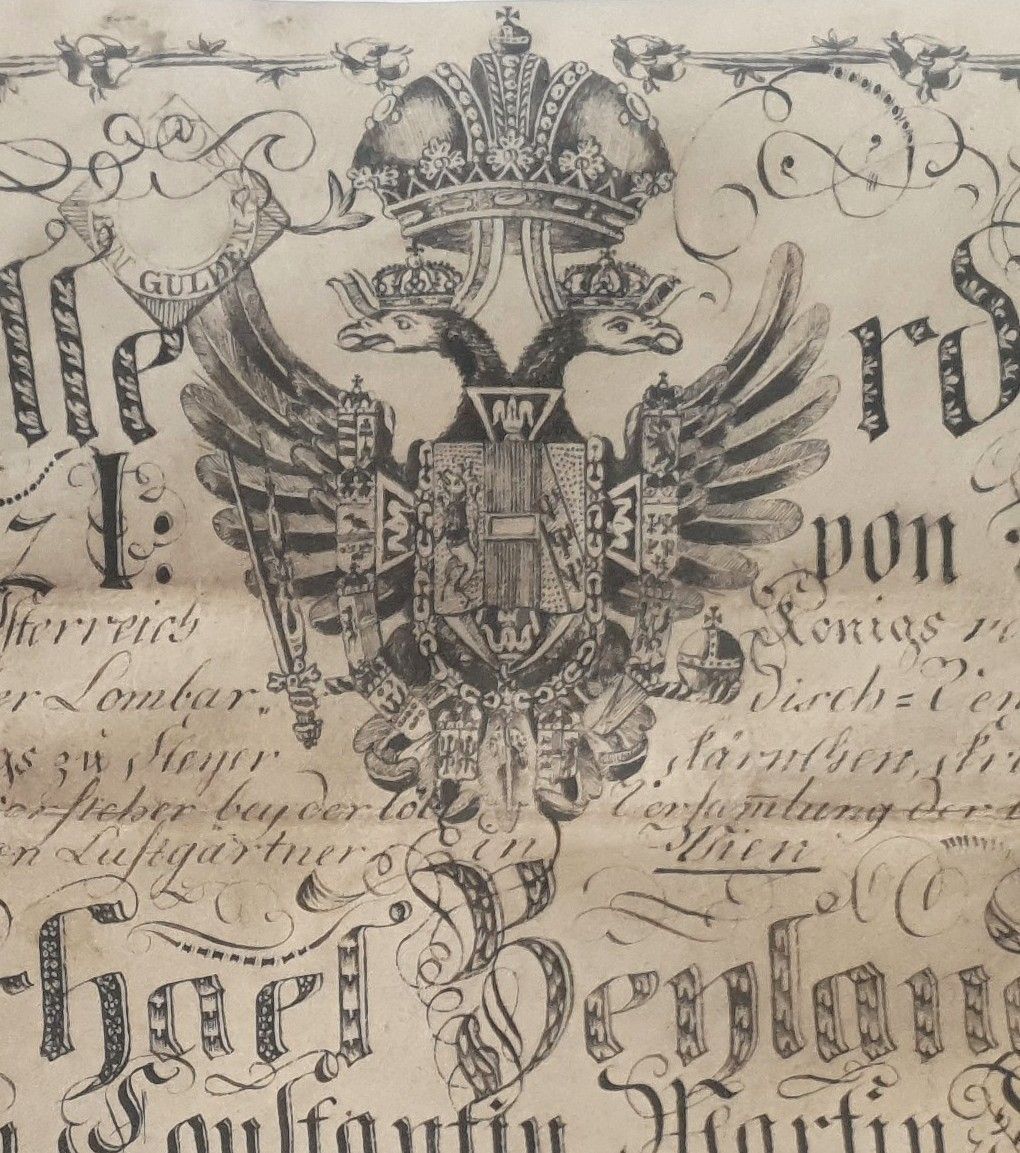 EIN GULDEN
lle rd
z I: von
Österreich Königs
er Lombar disch=Ven
gs zu Steyer kärnthen, Kra
orsteher bey der löb Versam̄lung der
en Lustgärtner in Wien
chael Benlan
Constantin Martin